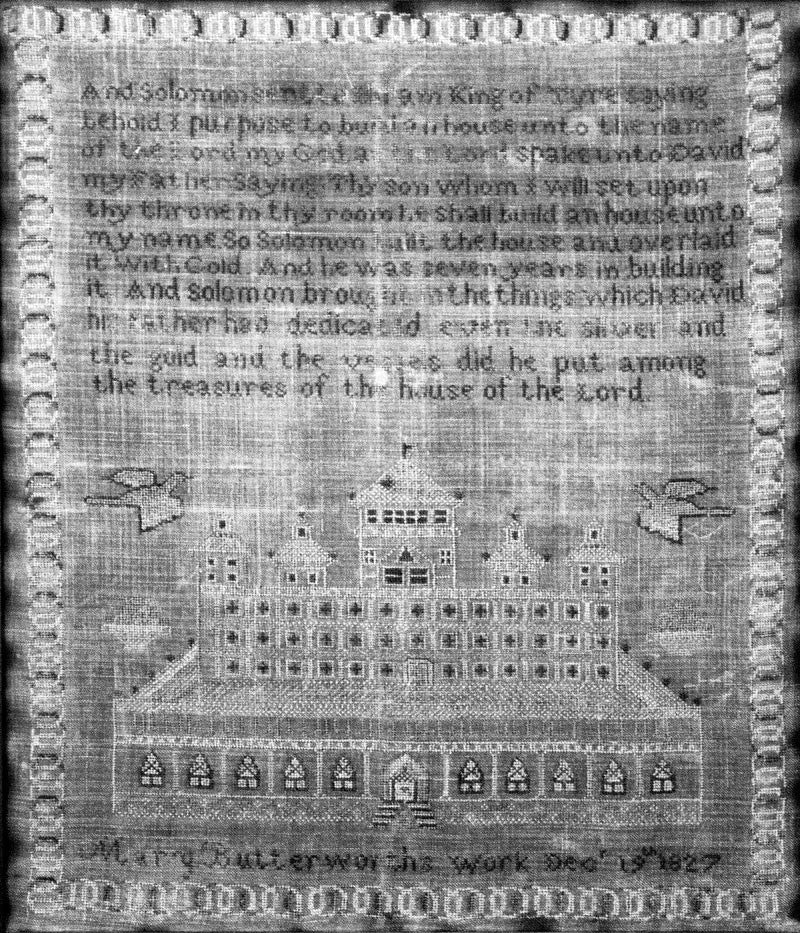 And Solomon sent to Hiram King of Tyre saying
behold I purpose to build an house unto the name
of the Lord my God as the Lord spake unto David
my Father Saying Thy son whom I will set upon
thy throne in thy room he shall build an house unto
my name So Solomon built the house and overlaid
it with Gold And he was seven years in building
it. And Solomon brought in the things which David
his father had dedicated even the silver and
the gold and the did he put among
the treasures of the house of the Lord.
Mary Butterworths Work Decr 19th 1827